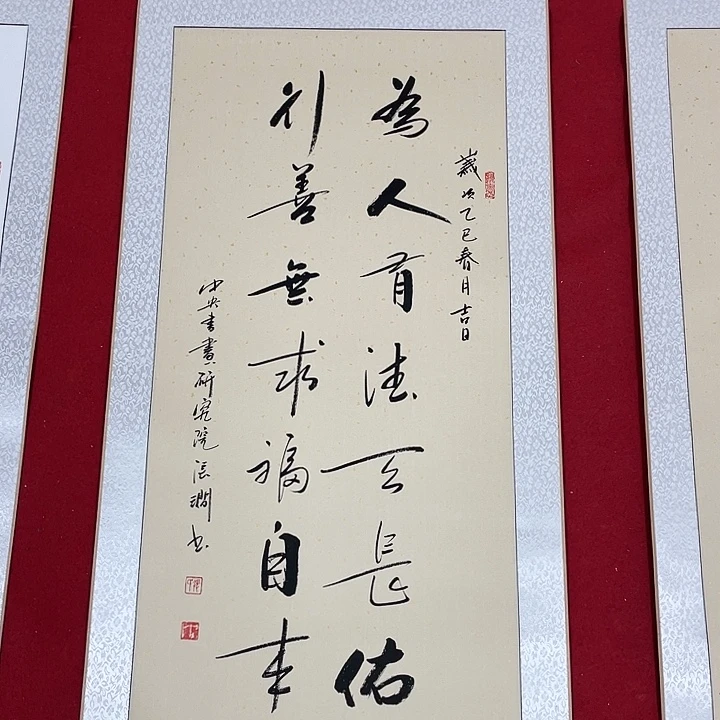 歲次乙巳春月吉日
為人有德天長佑
行善無求福自來
中央書畫研究院張書